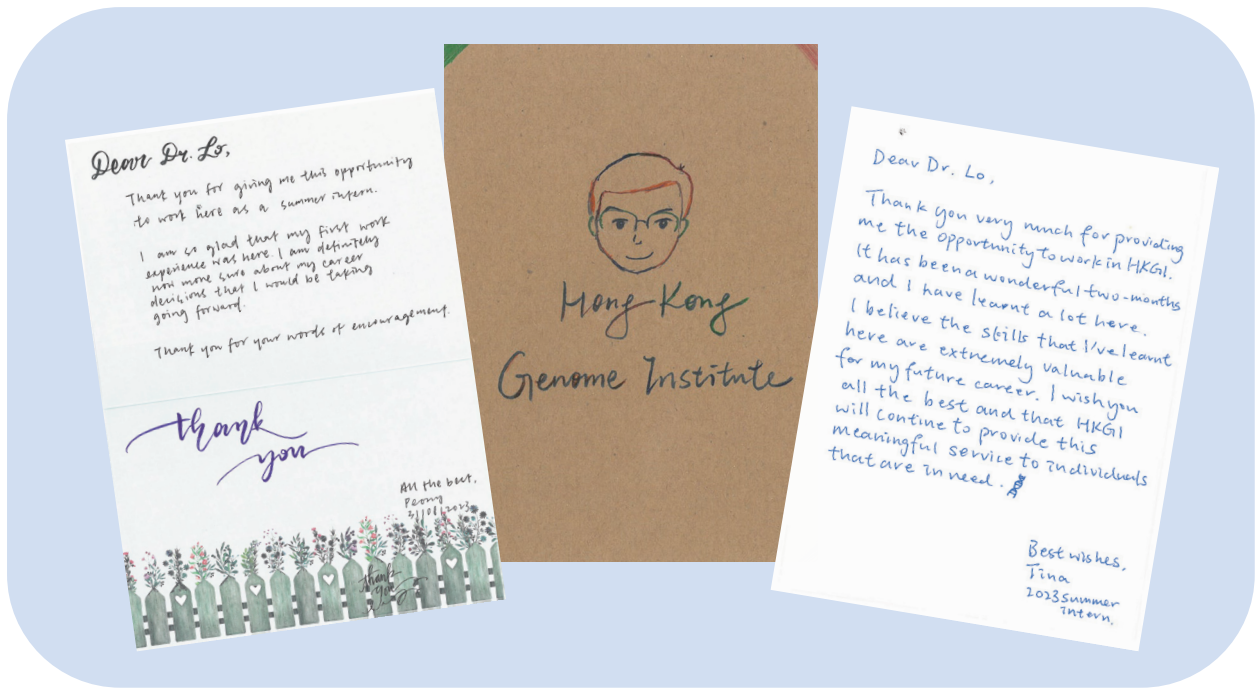 Dear Dr. Lo,
Thank you for giving me this opportunity
to work here as a summer intern.
I am so glad that my first work
experience was here. I am definitely
now more sure about my career
decisions that I would be taking
going forward.
Thank you for your words of encouragement.
thank
you
All the best,
Peony
2023
thank
you
Hong Kong
Genome Institute
Dear Dr. Lo,
Thank you very much for providing
me the opportunity to work in HKGI.
It has been a wonderful two-months
and I have learnt a lot here.
I believe the skills that I've learnt
here are extremely valuable
for my future career. I wish you
all the best and that HKGI
will contine to provide this
meaningful service to individuals
that are in need.
Best wishes,
Tina
2023 summer
intern.